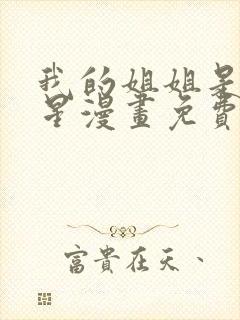 我的姐姐是
星漫畫免費
富貴在天、